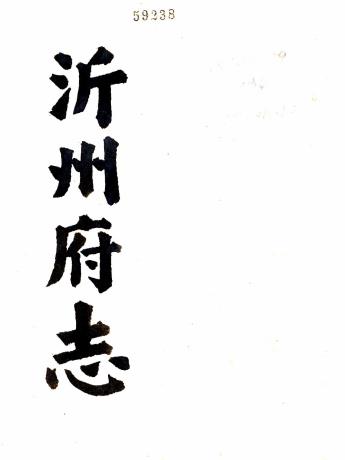 59238
沂州府志